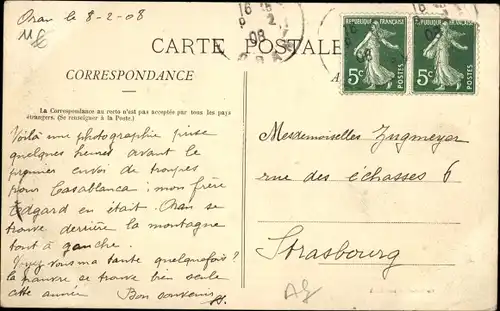 Oran le 8-2-08
CARTE POSTALE
CORRESPONDANCE
La Correspondance au recto n'est pas acceptée par tous les pays
étrangers. (Se renseigner à la Poste.)
Voilà une photographie prise
quelques heures avant le
premier envoi de troupes
pour Casablanca; mon frère
Edgard en était. Oran se
trouve derrière la montagne
tout à gauche.
Voyez vous ma tante quelquefois?
la pauvre se trouve bien seule
cette année. Bon souvenir
REPUBLIQUE FRANÇAISE
POSTES
5c
REPUBLIQUE FRANÇAISE
POSTES
5c
16
08
Mesdemoiselles Zugmeyer
rue des échasses 6
Strasbourg